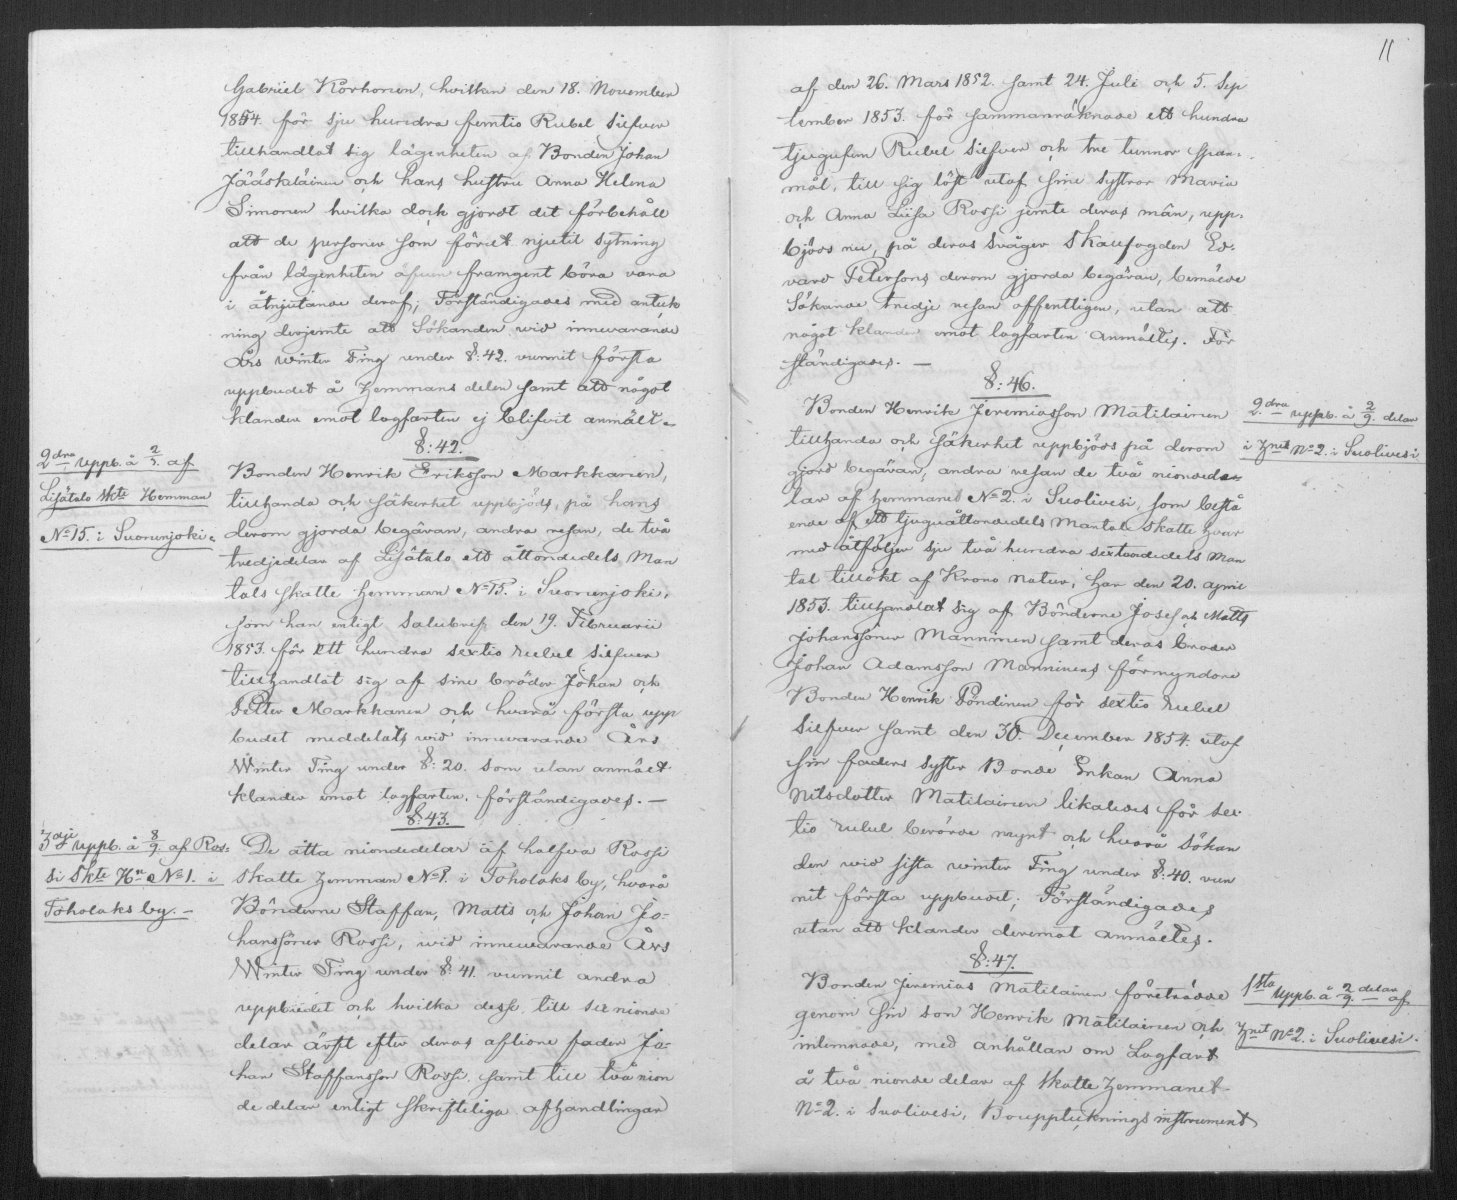 Gabriel Korhonen, hvilken den 18. November
1854. för sju hundra femtio Rubel Silfver
tillhandlat sig lägenheten af Bonden Johan
Jääskeläinen och hans hustru Anna Helena
Simonen hvilka dock gjordt det förbehåll
att de personer som förut njutit sytning
från lägenheten äfven framgent böra vara
i åtnjutande deraf; Förständigades med anteck
ning derjemte att Sökanden wid innevarande
Års winter Ting under §: 42. vunnit första
uppbudet å hemmans delen samt att något
klander emot lagfarten ej blifvit anmält.
§: 42.
2dra uppb. å 2/3. af
Lisätalo skte Hemman
No 15. i Suorunjoki.
Bonden Henrik Eriksson Markkanen,
tillhanda och säkerhet uppbjöds, på hans
derom gjorda begäran, andra resan, de två
tredjedelar af Lisätalo ett åttondedels Man
tals skatte hemman No 15. i Suorunjoki,
som han enligt salubref den 19. Februarii
1853. för ett hundra sextio rubel silfver
tillhandlat sig af sine bröder Johan och
Petter Markkanen och hvarå första upp
budet meddelats wid innevarande Års
Winter Ting under §: 20. som utan anmält
klander emot lagfarten, förständigades. —
§: 43.
3dje uppb. å 8/9. af Ros-
si Skte Hn No 1. i
Toholaks by. —
De åtta niondedelar af halfva Rossi
skatte hemman No 1. i Toholaks by, hvarå
Bönderne Staffan, Matts och Johan Jo-
hanssöner Rossi, wid innevarande Års
Winter Ting under §: 41. vunnit andra
uppbudet och hvilka desse till sex nionde
delar ärft efter deras aflidne fader Jo-
han Staffansson Rossi, samt till två nion
de delar enligt skriftliga afhandlingar
11
af den 26. Mars 1852. samt 24. Juli och 5. Sep
tember 1853. för sammanräknade ett hundra
tjugufem Rubel silfver och tre tunnor span-
mål, till sig löst utaf sine systrar Maria
och Anna Lisa Rossi jemte deras män, upp-
bjöds nu, på deras svåger Skaufogden Ed-
vard Petersons derom gjorda begäran, bemälde
Sökande tredje resan offentligen, utan att
något klander emot lagfarten anmältes. För
ständigades. —
§: 46.
2dra uppb. å 2/9. delar
i hnet No 2. i Suolivesi
Bonden Henrik Jeremiasson Matilainen
tillhanda och säkerhet uppbjöds på derom
gjord begäran, andra resan de två niondede
lar af hemmanet No 2. i Suolivesi, som bestå
ende af ett tjuguåttondedels Mantal skatte hvar
med åtföljer sju två hundra sextondedels Man
tal tillökt af Krono natur, han den 20. april
1853. tillhandlat sig af Bönderne Josef och Matts
Johanssöner Manninen samt deras broder
Johan Adamsson Manninens förmyndare
Bonden Henrik Pöndinen för sextio rubel
Silfver samt den 30. December 1854. utaf
sin faders syster Bonde Enkan Anna
Nilsdotter Matilainen likaledes för sex-
tio rubel berörde mynt och hvarå Sökan
den wid sista winter Ting under §: 40. vun
nit första uppbudet; Förständigades
utan att klander deremot anmältes.
§: 47.
1sta uppb. å 2/9. delar af
hnet No 2. i Suolivesi.
Bonden Jeremias Matilainen företrädde
genom sin son Henrik Matilainen och
inlemnade, med anhållan om Lagfart
å två nionde delar af skatte hemmanet
No 2. i Suolivesi, Bouppteckningsinstrument